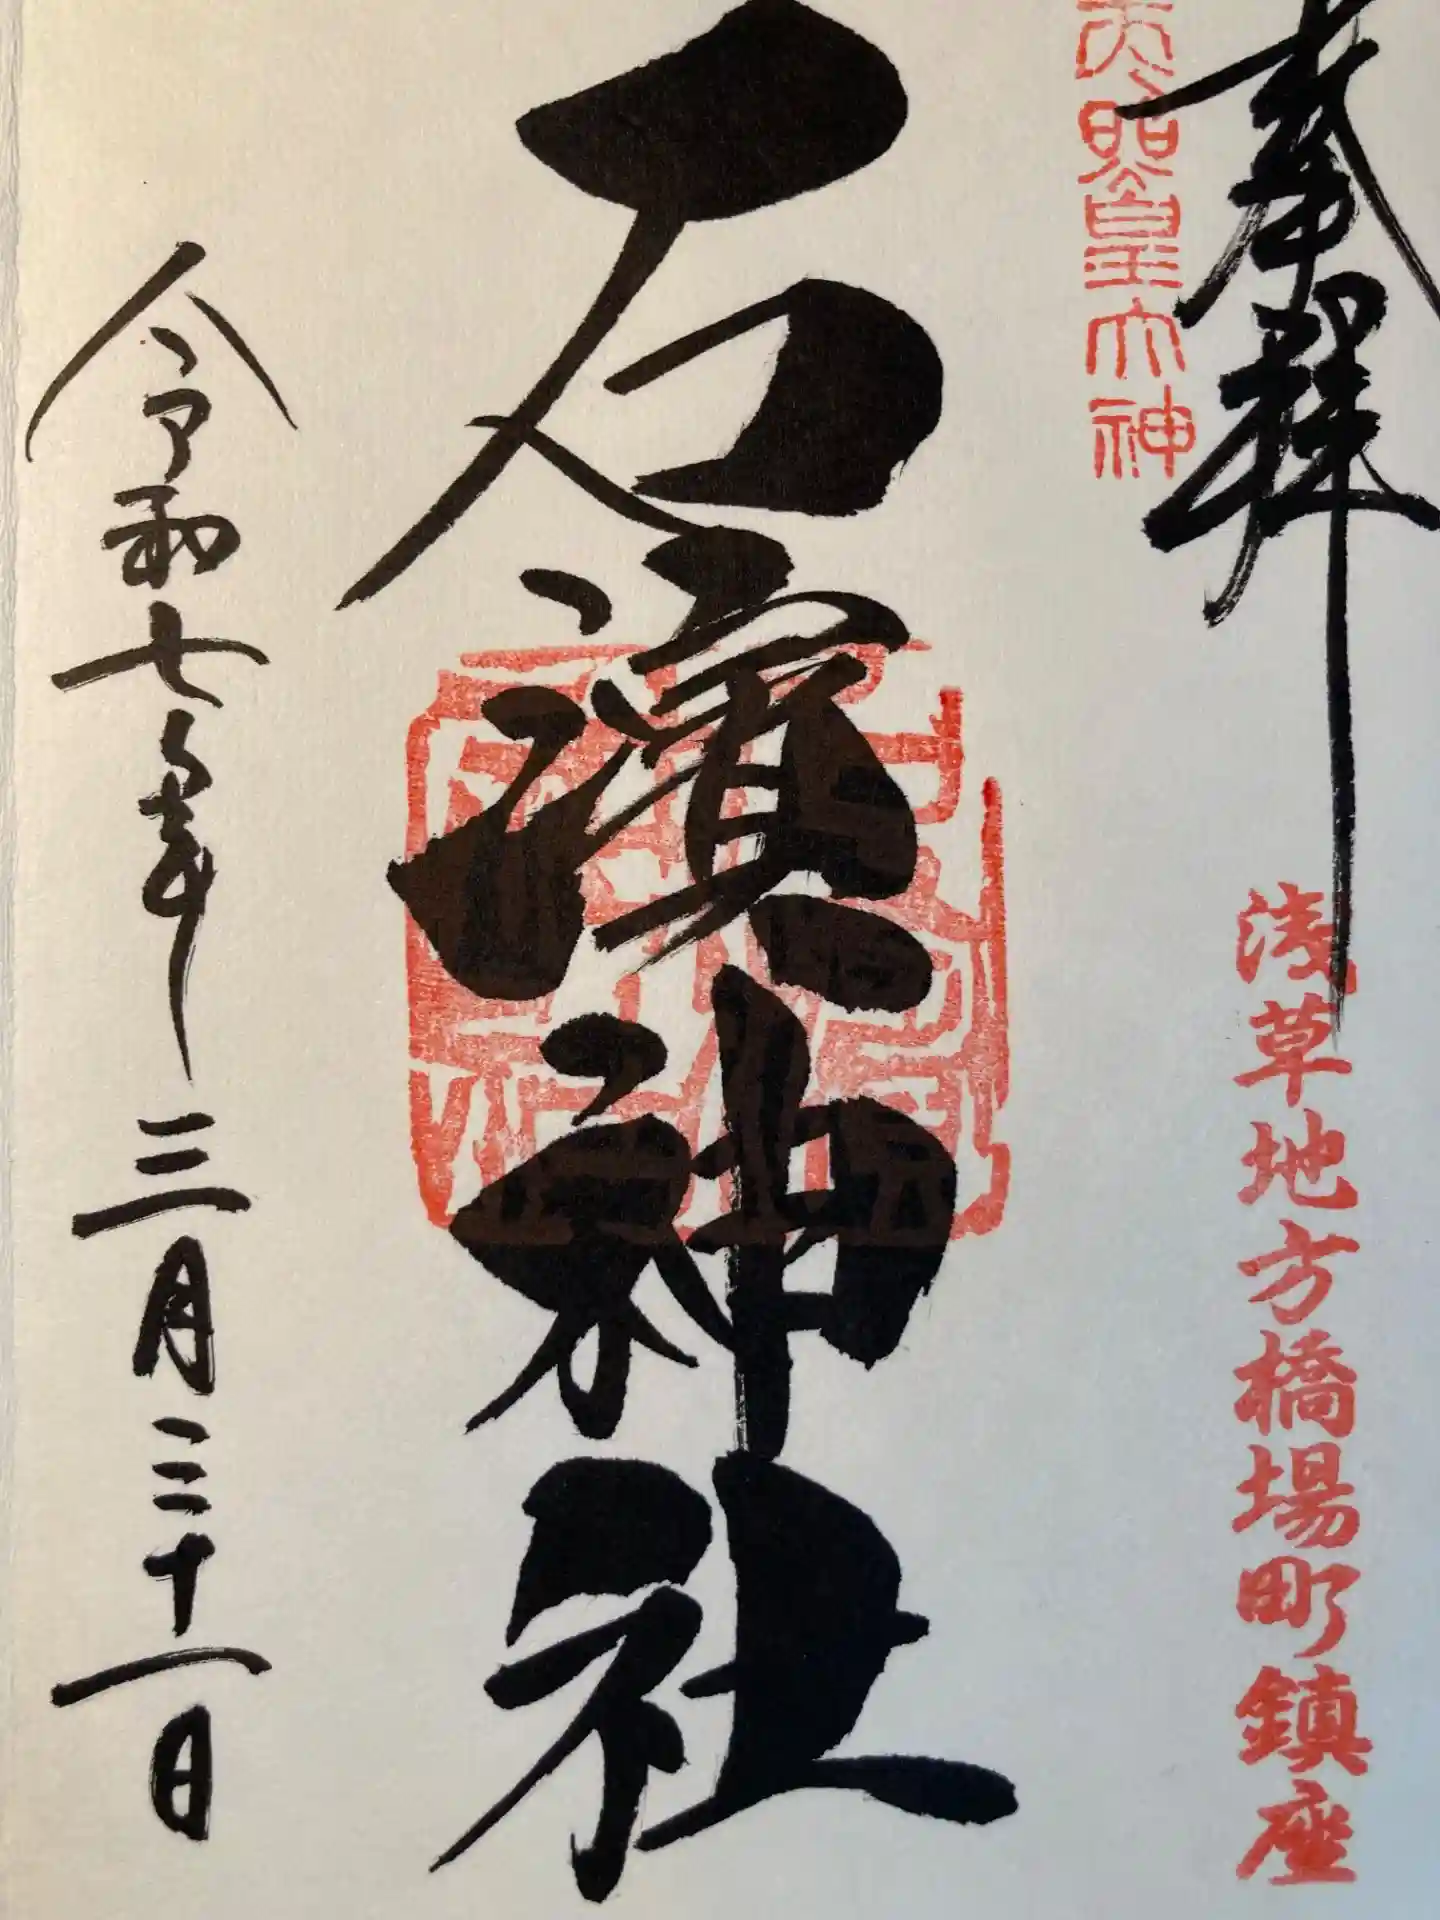 奉拝
天照皇大神
浅草地方橋場町鎮座
石濱神社
令和七年三月三十一日